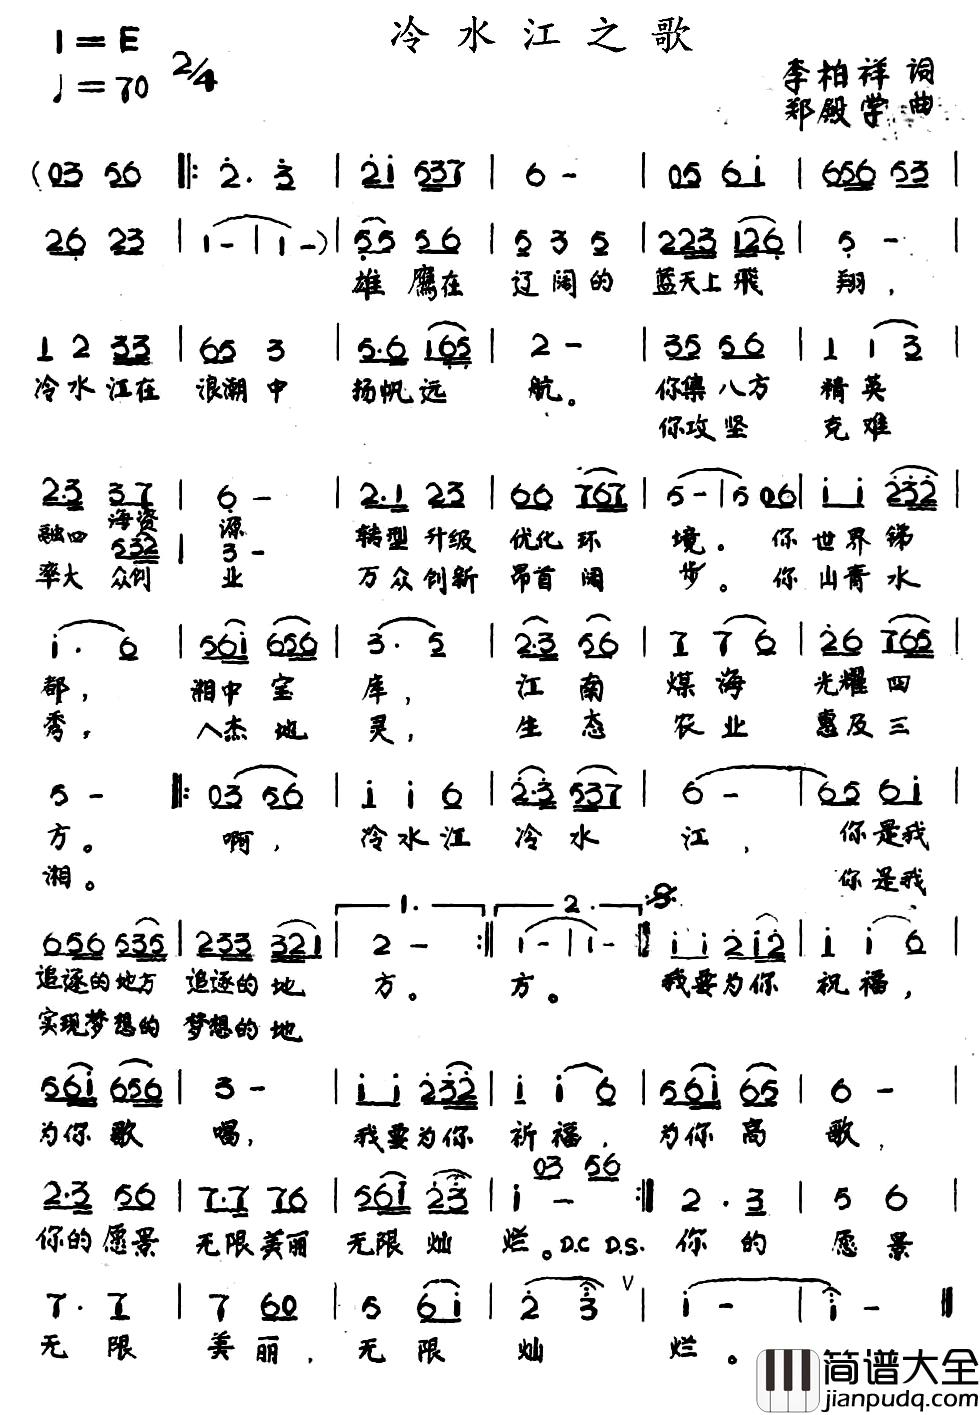 冷水江之歌
1=E 2/4
♩=70
李柏祥 词
郑殿学 曲
(03 56 ‖: 2· 3 | 21 537 | 6 - | 05 61 | 656 53 |
26 23 | 1 - | 1 - ) | 55 56 | 5 3 5 | 223 126 | 5 - |
雄鹰在辽阔的蓝天上飛翔，
1 2 33 | 65 3 | 5·6 165 | 2 - | 35 56 | 1 1 3 |
冷水江在浪潮中扬帆远航。你集八方精英
你攻坚克难
2·3 37 | 6 - | 2·1 23 | 66 767 | 5 - | 5 06 | 1 1 232 |
融四海资源转型升级优化环境。你世界锑
532 | 3 -
率大众创业万众创新昂首阔步。你山青水
1· 6 | 561 656 | 3· 5 | 2·3 56 | 7 7 6 | 26 765 |
都，湘中宝库，江南煤海光耀四
秀，人杰地灵，生态农业惠及三
5 - ‖: 03 556 | 1 1 6 | 2·3 537 | 6 - | 65 61 |
方。啊，冷水江冷水江，你是我
湘。你是我
1. 2.
656 535 | 233 321 | 2 - :‖ 1 - | 1 - ‖ 11 212 | 1 1 6 |
追逐的地方追逐的地方。方。我要为你祝福，
实现梦想的梦想的地
561 656 | 3 - | 1 1 232 | 1 1 6 | 561 65 | 6 - |
为你歌唱，我要为你祈福，为你高歌，
03 56
2·3 56 | 7·7 76 | 561 23 | 1 - :‖ 2· 3 | 5 6 |
你的愿景无限美丽无限灿烂。D.C D.S. 你的愿景
7· 7 | 7 60 | 5 61 | 2 3 ∨ | 1 - | 1 - ‖
无限美丽，无限灿烂。
简谱大全
jianpudq.com